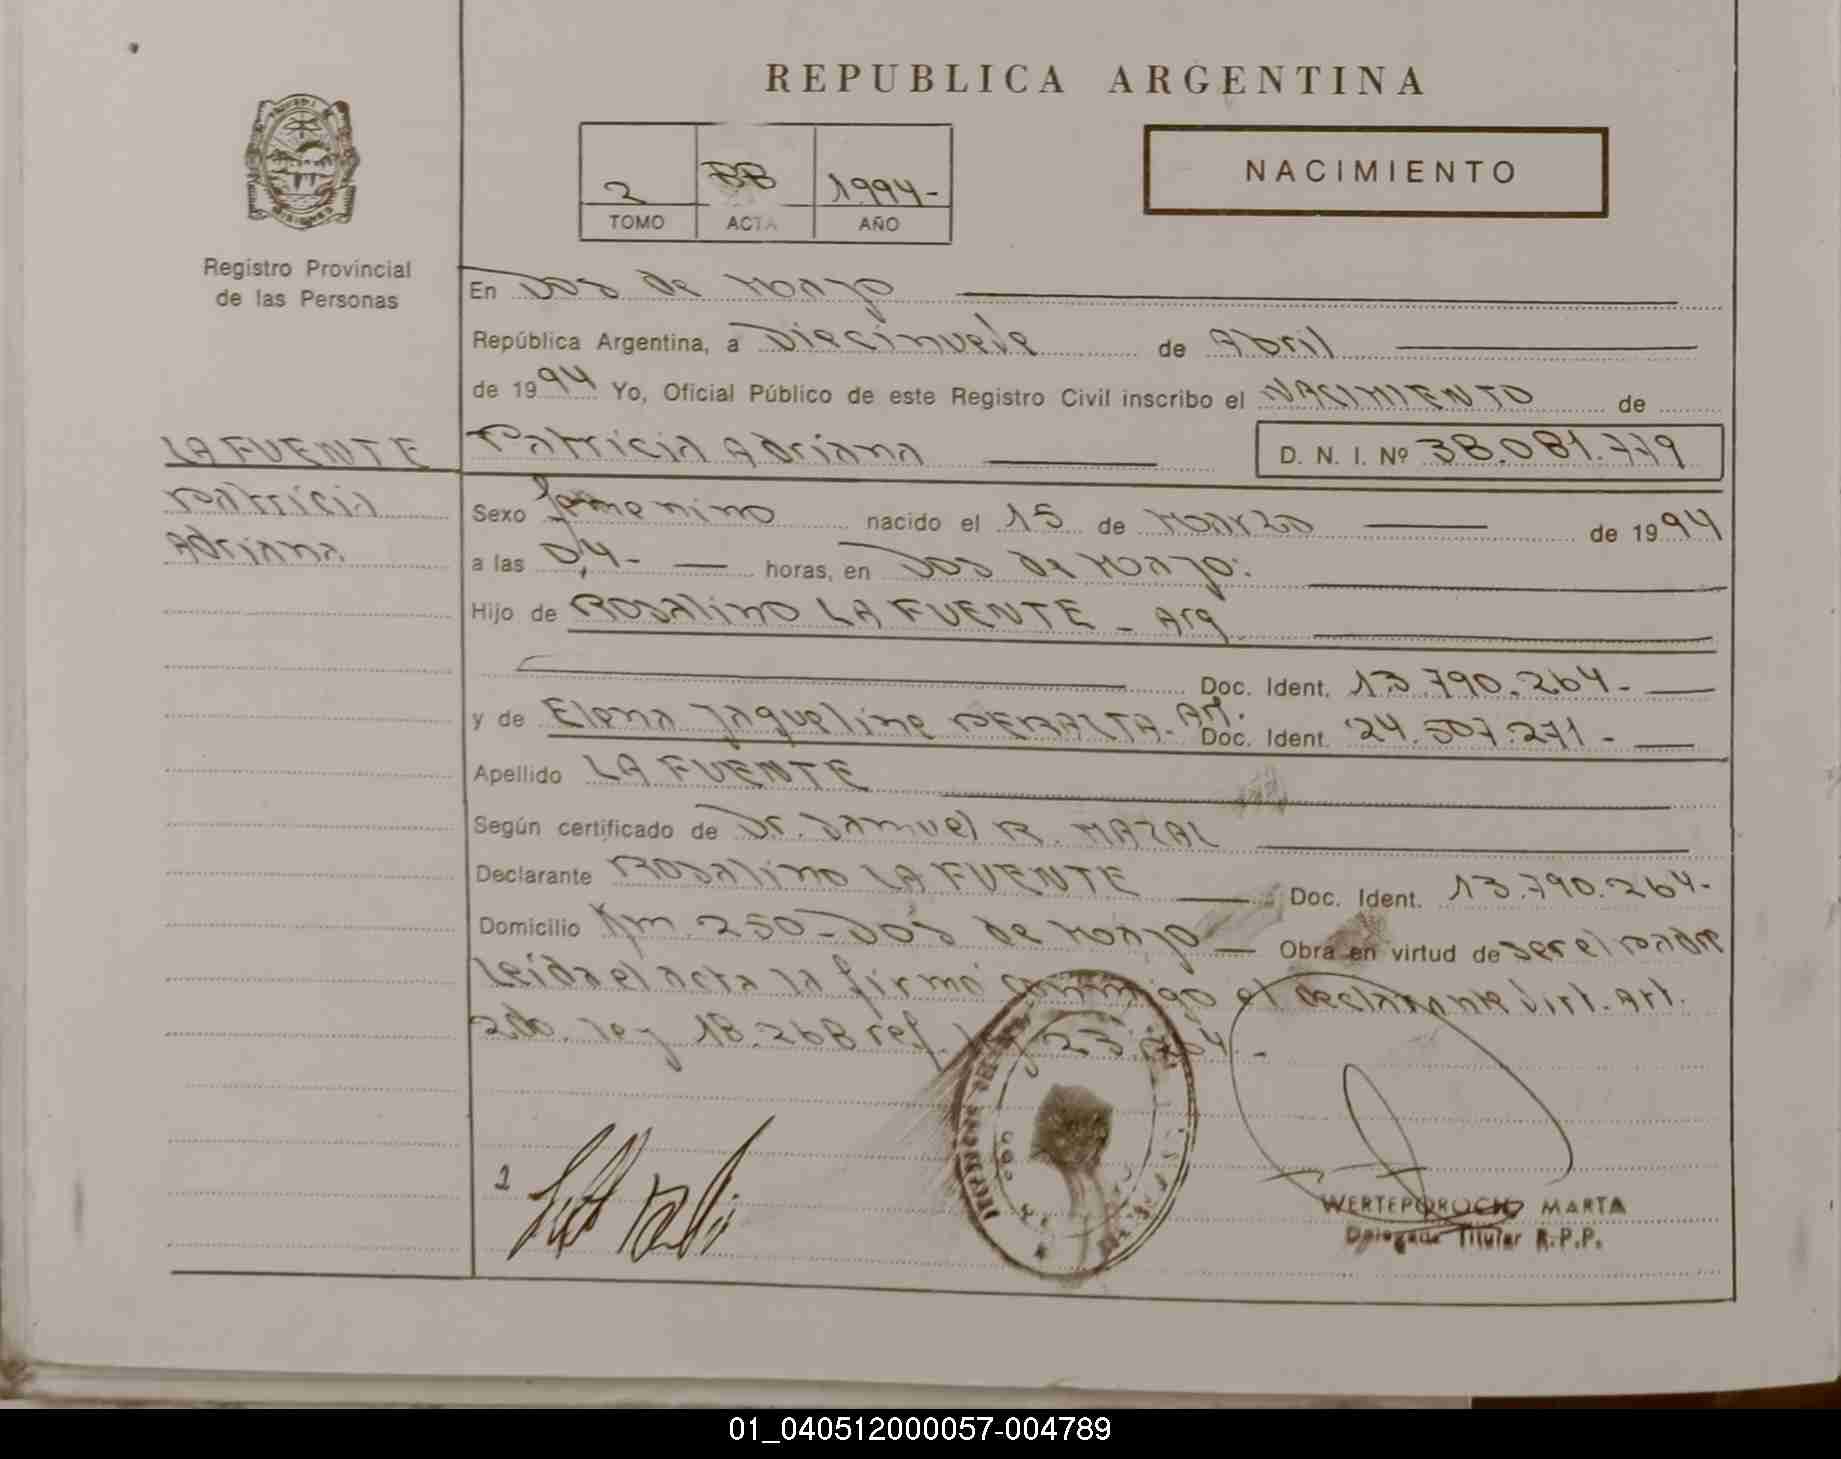 REPUBLICA ARGENTINA
NACIMIENTO
2 88 1994-
TOMO ACTA AÑO
Registro Provincial
de las Personas
En Dos de Mayo
República Argentina, a Diecinueve de Abril
de 1994 Yo, Oficial Público de este Registro Civil inscribo el NACIMIENTO de
LA FUENTE
Patricia
Adriana
Patricia Adriana D. N. I. Nº 38.081.779
Sexo femenino nacido el 15 de Marzo de 1994
a las 0,4- horas, en Dos de Mayo.
Hijo de Rosalino LA FUENTE - Arg
Doc. Ident. 13.790.264-
y de Elena Jaqueline PERALTA- Arg. Doc. Ident. 24.507.271-
Apellido LA FUENTE
Según certificado de Dr. Samuel R. MAZAL
Declarante Rosalino LA FUENTE Doc. Ident. 13.790.264-
Domicilio Km. 250-Dos de Mayo Obra en virtud de ser el padre
Leida el acta la firmó conmigo el declarante Virt. Art.
2do. ley 18.268 ref. 23.264.-
WERTEPOROCH MARTA
Delegada Titular R.P.P.
01_040512000057-004789